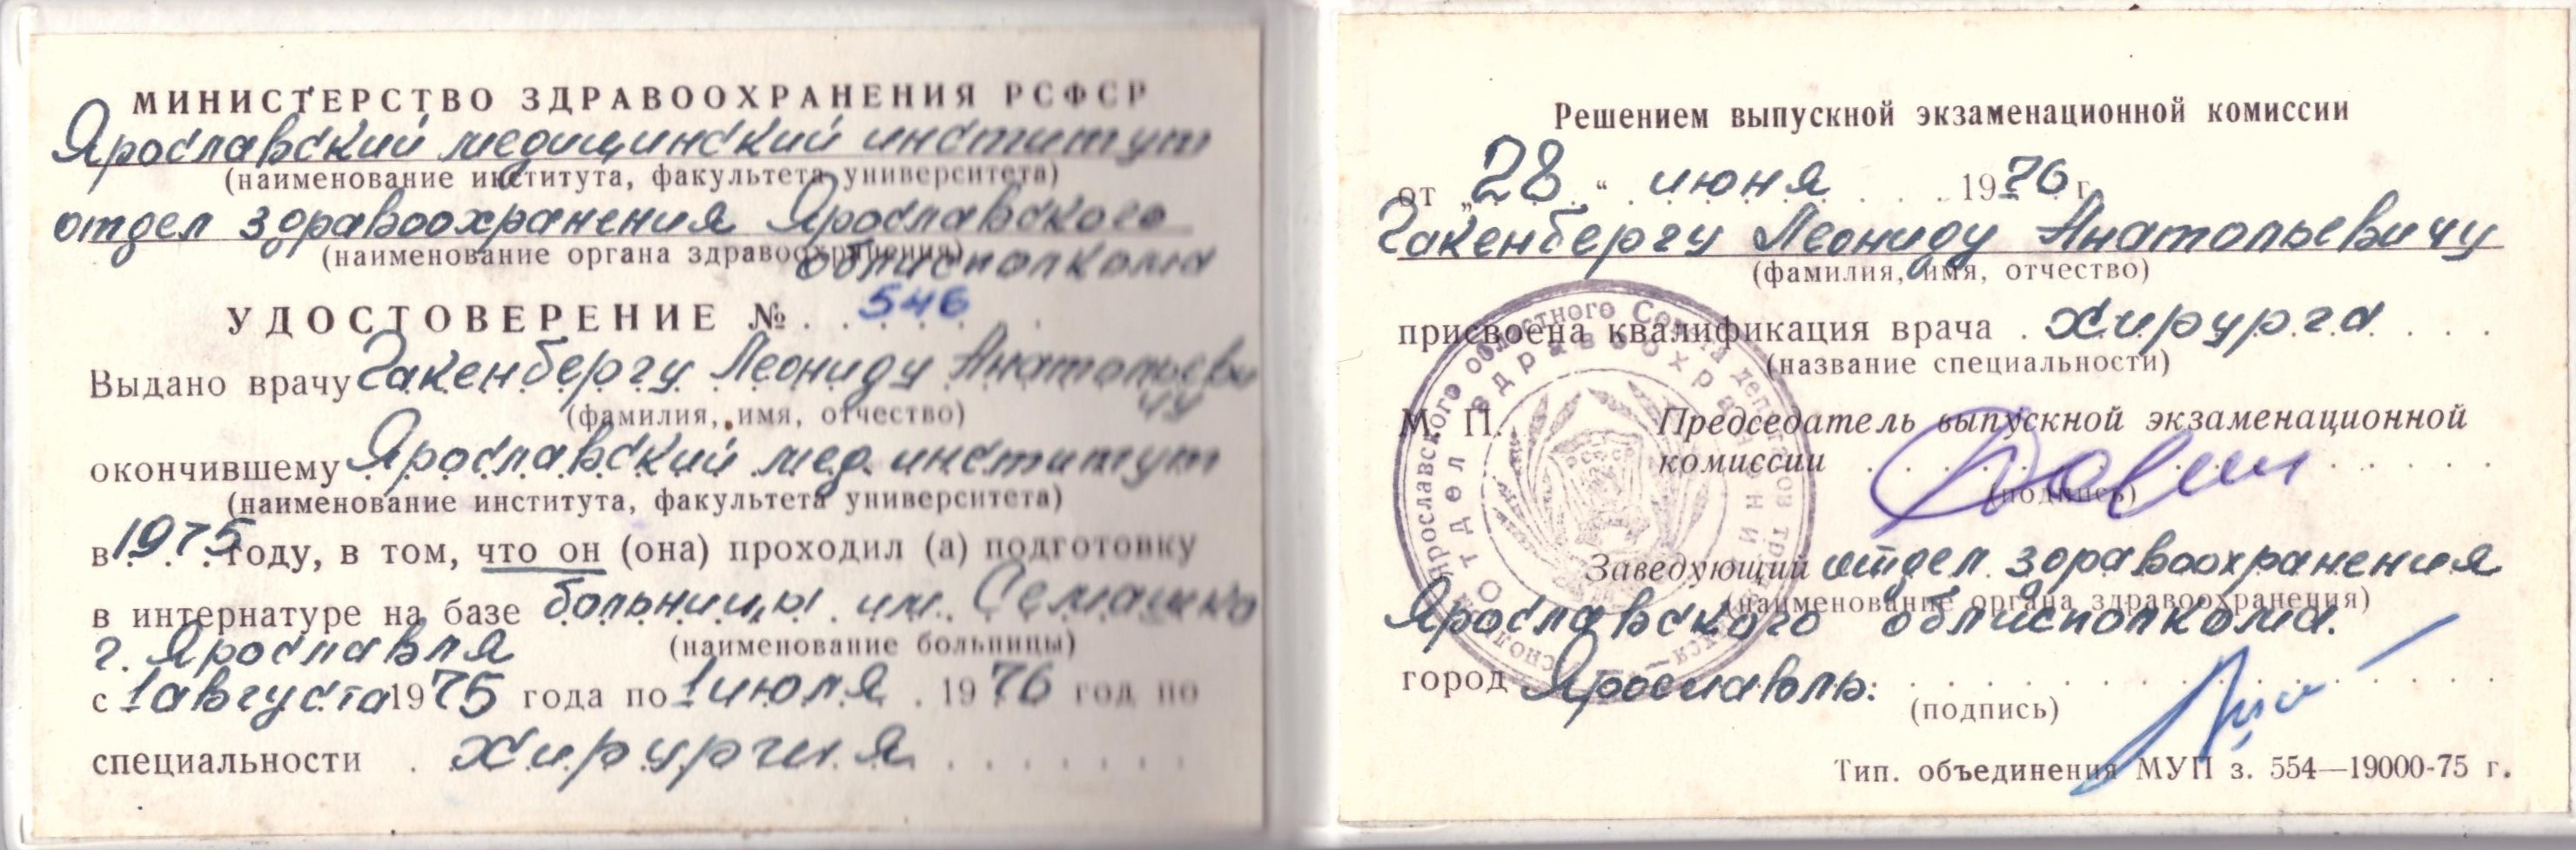 МИНИСТЕРСТВО ЗДРАВООХРАНЕНИЯ РСФСР
Ярославский медицинский институт
(наименование института, факультета университета)
отдел здравоохранения Ярославского
(наименование органа здравоохранения)
облисполкома
УДОСТОВЕРЕНИЕ № 546
Выдано врачу Гакенбергу Леониду Анатольеви
чу
(фамилия, имя, отчество)
окончившему Ярославский мед. институт
(наименование института, факультета университета)
в 1975 году, в том, что он (она) проходил (а) подготовку
в интернатуре на базе больницы им. Семашко
г. Ярославля
(наименование больницы)
с 1 августа 1975 года по 1 июля 1976 год по
специальности хирургия
Решением выпускной экзаменационной комиссии
от „28“ июня 1976 г.
Гакенбергу Леониду Анатольевичу
(фамилия, имя, отчество)
присвоена квалификация врача хирурга
(название специальности)
М. П.
Председатель выпускной экзаменационной
комиссии
(подпись)
Заведующий отдел здравоохранения
(наименование органа здравоохранения)
Ярославского облисполкома.
город Ярославль.
(подпись)
Тип. объединения МУП з. 554—19000-75 г.
Отдел здравоохранения
Ярославского областного Совета депутатов